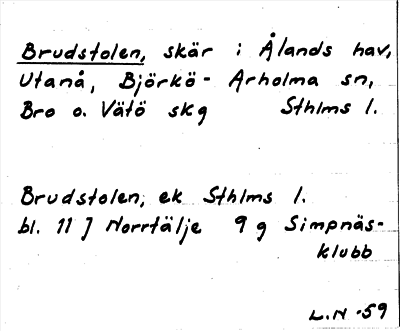 Brudstolen, skär i Ålands hav,
Utanå, Björkö-Arholma sn,
Bro o. Vätö skg Sthlms l.
Brudstolen, ek Sthlms l.
bl. 11 J Norrtälje 9 g Simpnäs-
klubb
L.N -59